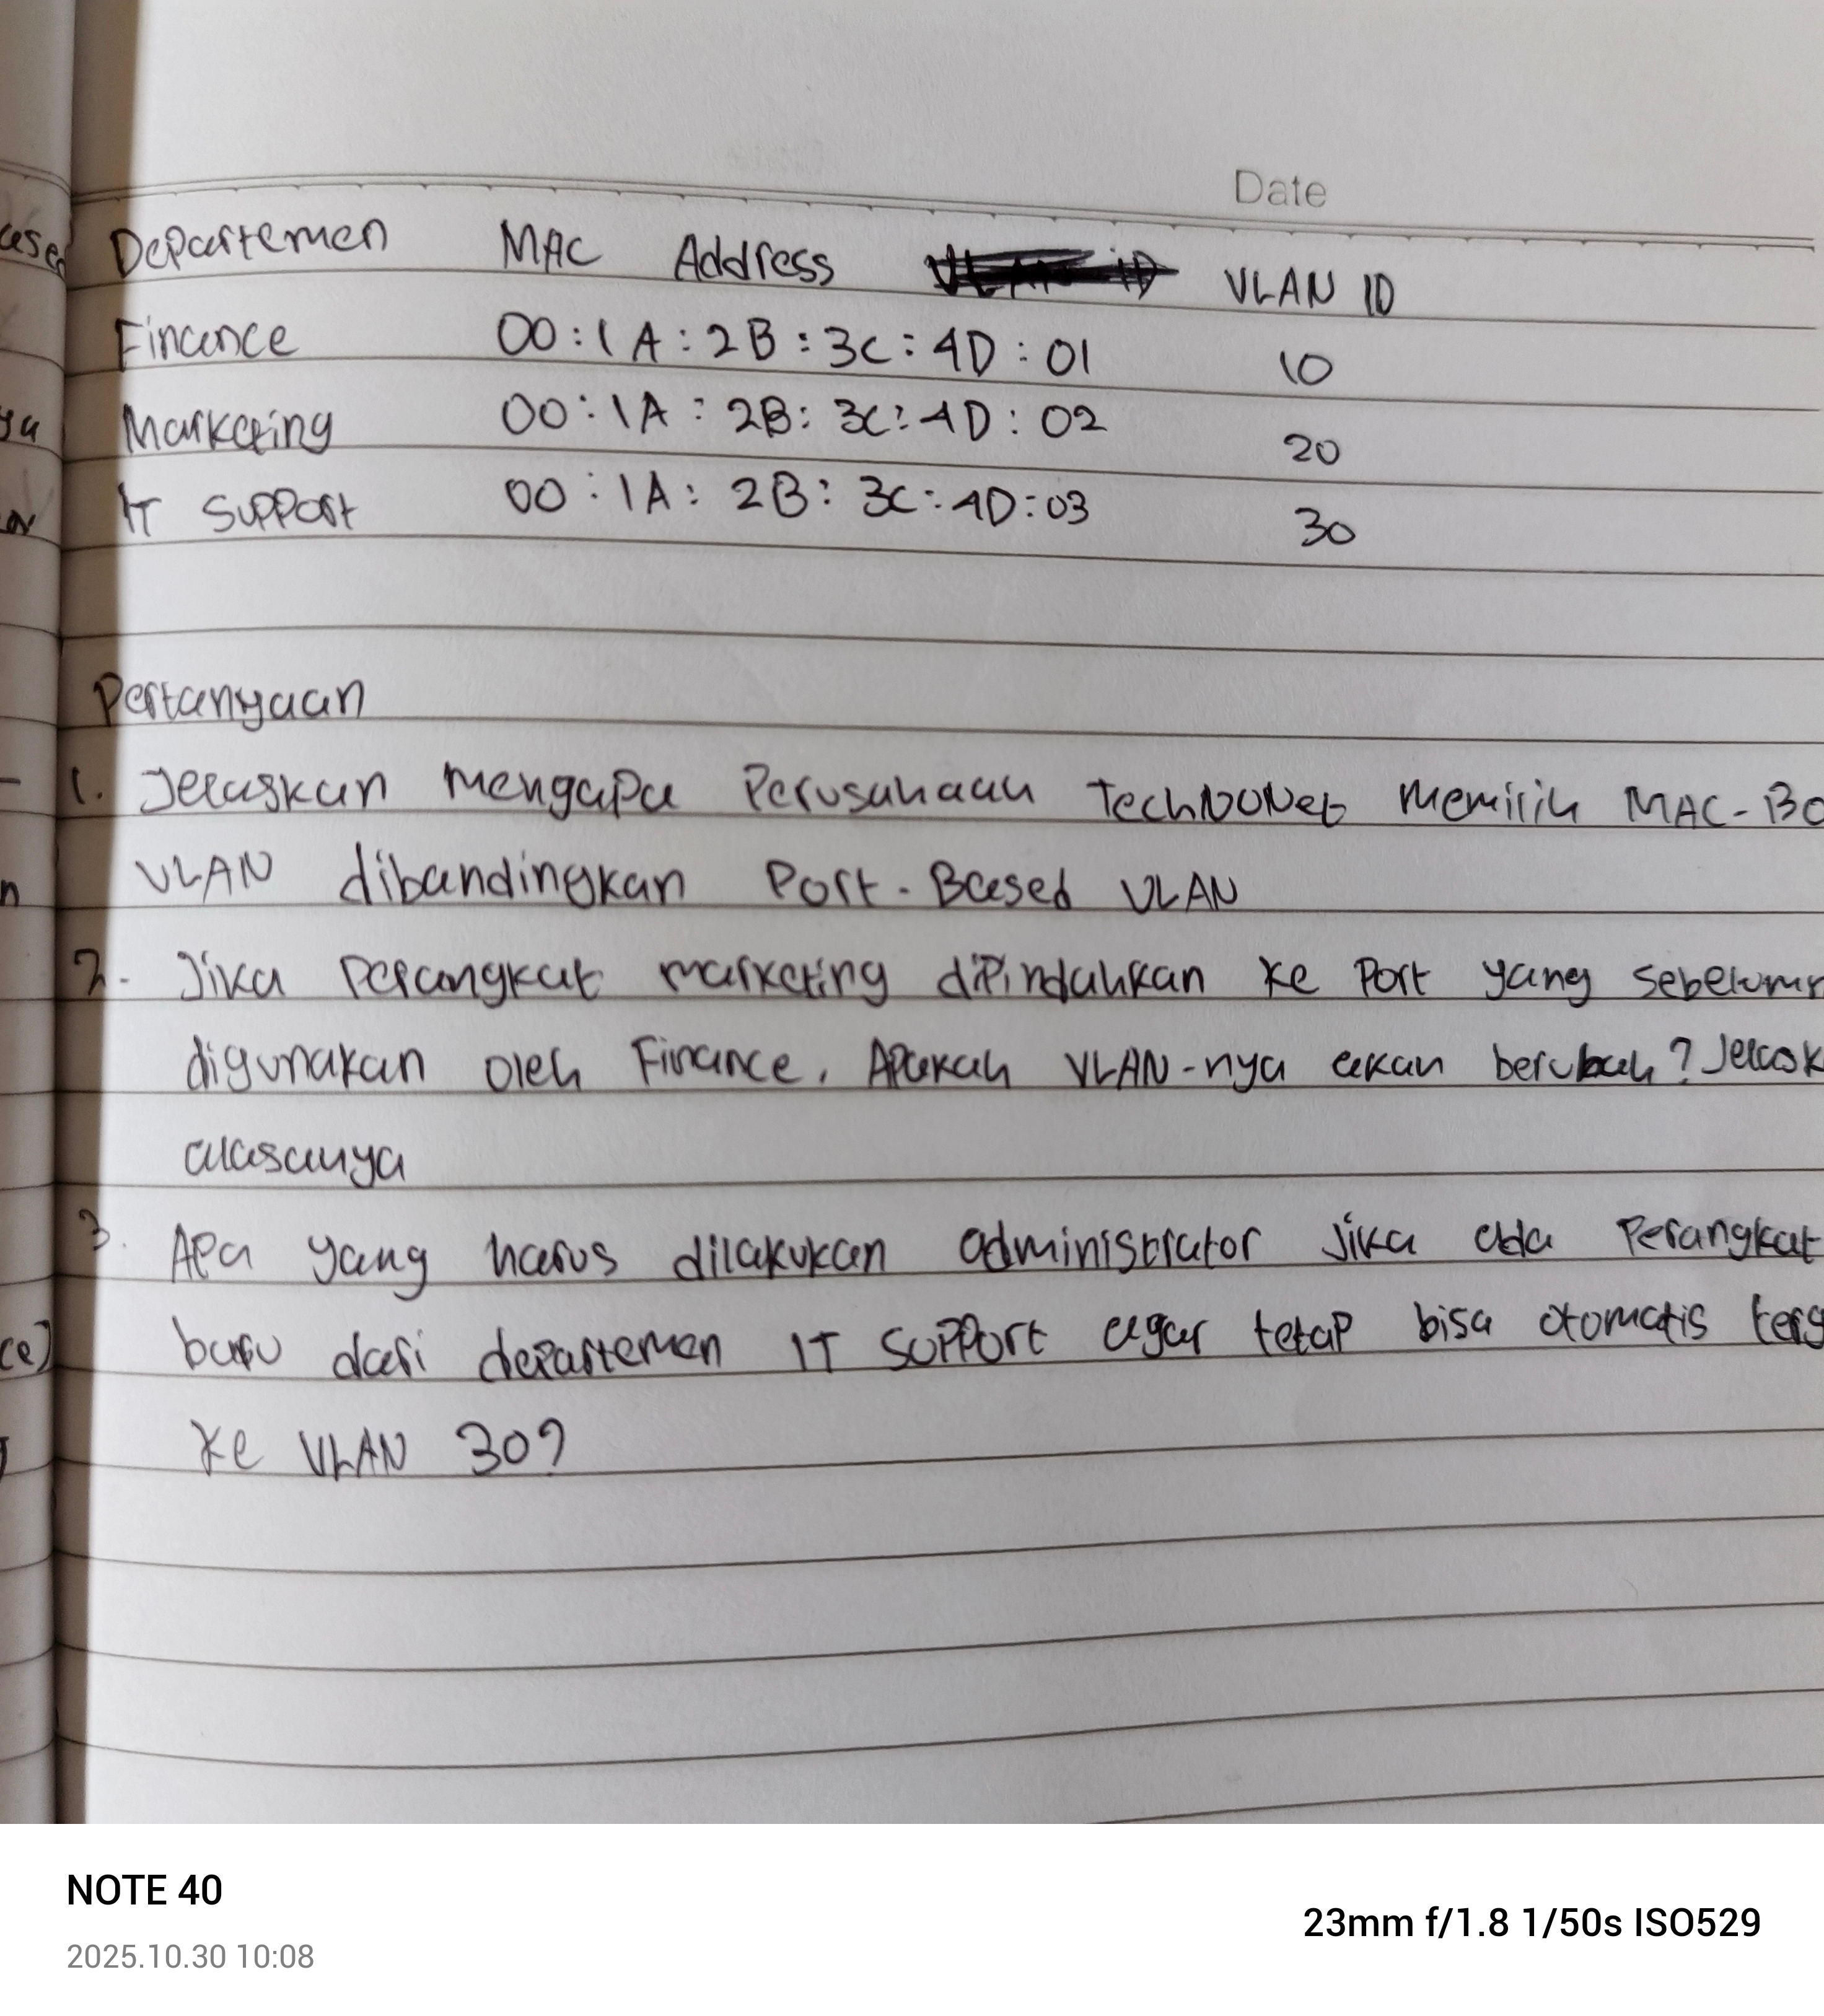 Date
Departemen MAC Address VLAN ID
Finance 00:1A:2B:3C:4D:01 10
Marketing 00:1A:2B:3C:4D:02 20
IT Support 00:1A:2B:3C:4D:03 30
Pertanyaan
1. Jelaskan mengapa Perusahaan TechNoNet Memilih MAC-Ba
VLAN dibandingkan Port-Based VLAN
2. Jika Perangkat marketing dipindahkan ke Port yang sebelumn
digunakan oleh Finance, Apakah VLAN-nya akan berubah? Jelask
alasanya
3. Apa yang harus dilakukan administrator jika ada Perangkat
baru dari departemen IT Support agar tetap bisa otomatis terg
ke VLAN 30?
NOTE 40
2025.10.30 10:08
23mm f/1.8 1/50s ISO529